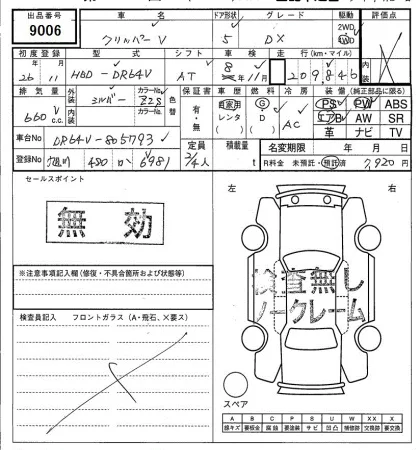 出品番号 車名 ドア形状 グレード 駆動 評価点
9006 クリッパーV 5 DX 2WD 4WD
初度登録 型式 シフト 車検 走行(km・マイル)
26年 11月 HBD-DR64V AT 8年 11月 209846
排気量 外装 シルバー カラーNo. Z2S 色替 保証書 車歴 燃料 冷房 装備 (純正部品に限る)
660 c.c. 内装 カラーNo. 有・無 自家用 レンタ G D AC PS PW ABS
エアB AW SR
革 ナビ TV
車台No DR64V-805793
定員 積載量 t 名変期限 年 月 日
登録No 旭川 480 か 6981 2/4人 R料金 未預託・預託済 7,920円
セールスポイント
無効
左 右
※注意事項記入欄(修復・不具合箇所および状態等)
検査無し
ノークレーム
検査員記入 フロントガラス(A・飛石、×要ス)
スペア
A B C P S U W X XX
線キズ 要板金 腐蝕 要塗装 サビ 凹凸 補修跡 交換跡 要交換